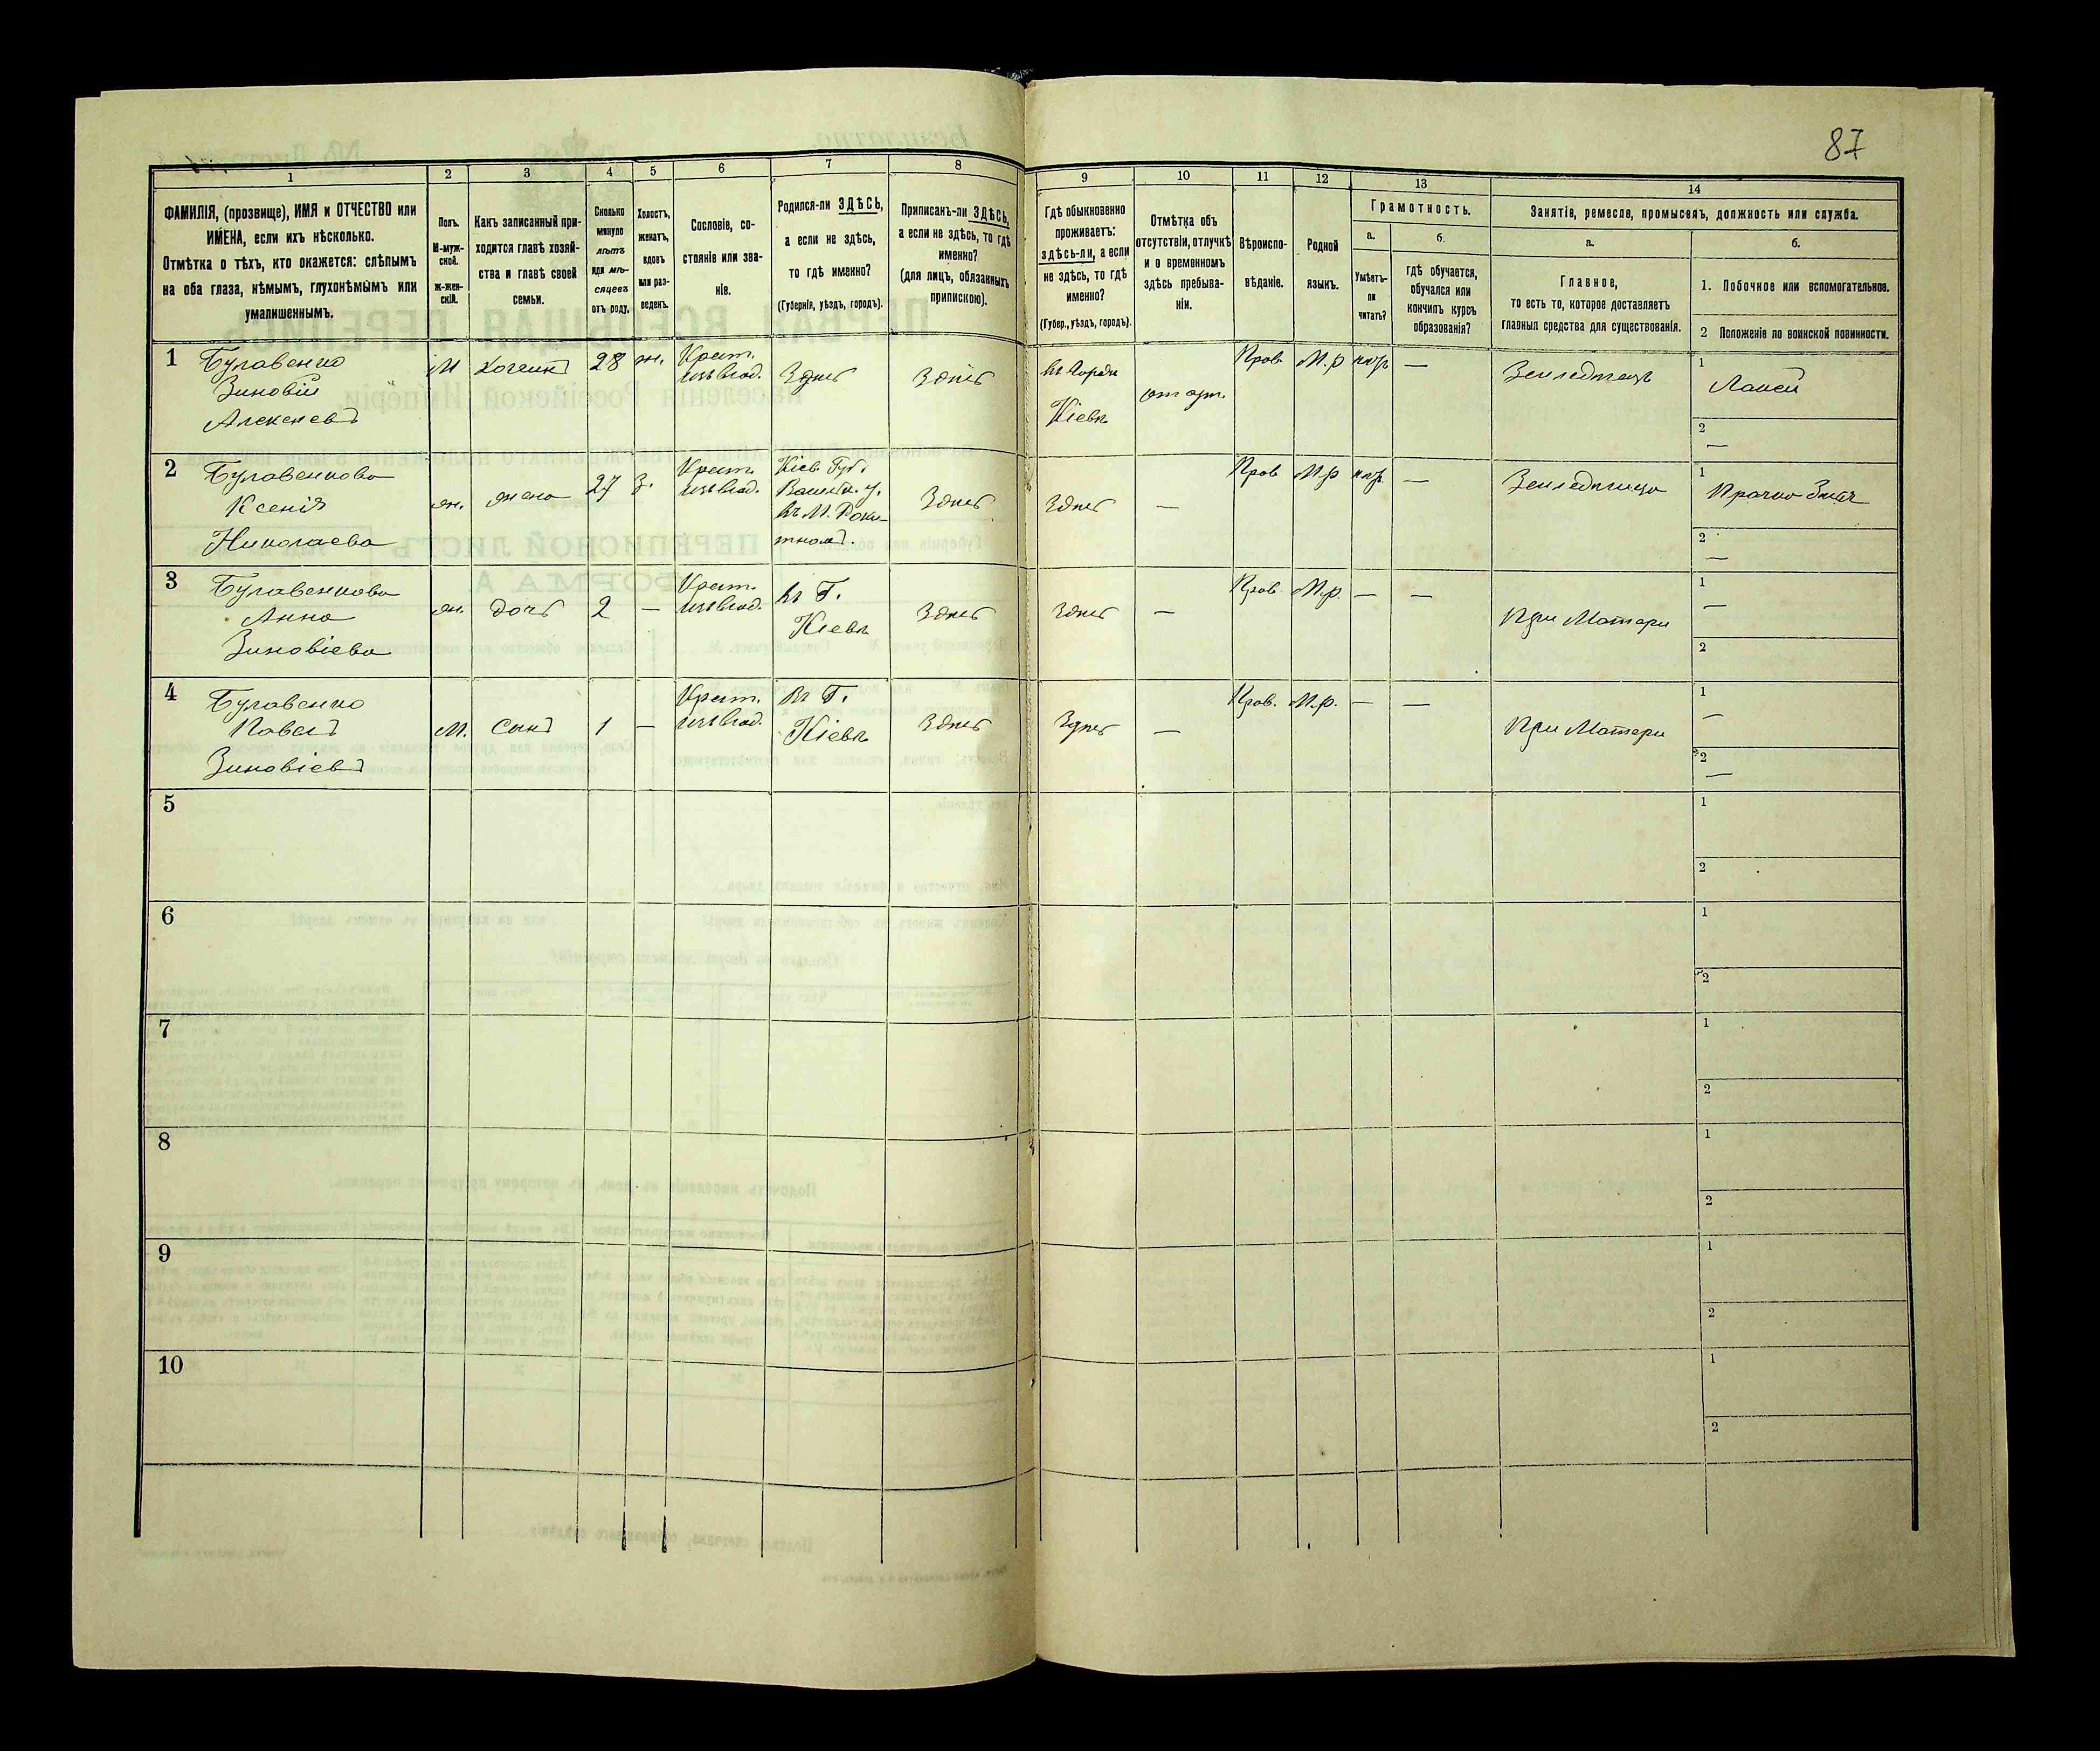 87
1
2
3
4
5
6
7
8
9
10
11
12
13
14
ФАМИЛІЯ, (прозвище), ИМЯ и ОТЧЕСТВО или
ИМЕНА, если ихъ нѣсколько.
Отмѣтка о тѣхъ, кто окажется: слѣпымъ
на оба глаза, нѣмымъ, глухонѣмымъ или
умалишеннымъ.
Полъ.
М-муж-
ской.
ж-жен-
скій.
Какъ записанный при-
ходится главѣ хозяй-
ства и главѣ своей
семьи.
Сколько
минуло
лѣтъ
или мѣ-
сяцевъ
отъ роду.
Холостъ,
женатъ,
вдовъ
или раз-
веденъ.
Сословіе, со-
стояніе или зва-
ніе.
Родился-ли ЗДѢСЬ,
а если не здѣсь,
то гдѣ именно?
(Губернія, уѣздъ, городъ).
Приписанъ-ли ЗДѢСЬ,
а если не здѣсь, то гдѣ
именно?
(для лицъ, обязанныхъ
припискою).
Гдѣ обыкновенно
проживаетъ:
здѣсь-ли, а если
не здѣсь, то гдѣ
именно?
(Губер., уѣздъ, городъ).
Отмѣтка объ
отсутствіи, отлучкѣ
и о временномъ
здѣсь пребыва-
ніи.
Вѣроиспо-
вѣданіе.
Родной
языкъ.
Грамотность.
а.
Умѣетъ-
ли
читать?
б.
гдѣ обучается,
обучался или
кончилъ курсъ
образованія?
Занятія, ремесло, промыселъ, должность или служба.
а.
Главное,
то есть то, которое доставляетъ
главныя средства для существованія.
б.
1. Побочное или вспомогательное.
2 Положеніе по воинской повинности.
1
Булавенко
Зиновій
Алексеевъ
М
хозяинъ
28
ж.
Крест.
изъ влад.
Здесь
Здесь
въ городе
Кіеве
Прав.
М.р
—
Земледелецъ
1
Лакей
2
—
2
Булавенкова
Ксенія
Николаева
ж.
жена
27
З.
Крест.
изъ влад.
Кіев. Губ.
Васильк. у.
въ М. Роки-
тномъ.
Здесь
Здесь
—
Прав
М.р
—
1
2
—
3
Булавенкова
Анна
Зиновіева
ж.
дочь
2
—
Крест.
изъ влад.
въ Г.
Кіеве
Здесь
Здесь
—
Прав.
М.р.
—
—
При Матери
1
—
2
4
Булавенко
Павелъ
Зиновіевъ
М.
Сынъ
1
—
Крест.
изъ влад.
въ Г.
Кіеве
Здесь
Здесь
—
Прав.
М.р.
—
—
При Матери
1
—
2
—
5
1
2
6
1
2
7
1
2
8
1
2
9
1
2
10
1
2